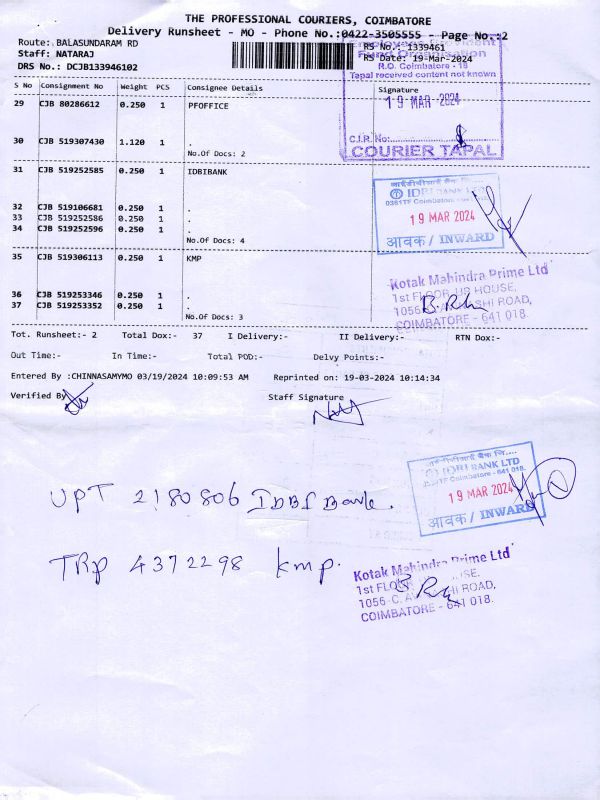 THE PROFESSIONAL COURIERS, COIMBATORE
Delivery Runsheet - MO - Phone No.:0422-3505555 - Page No.:2
Route: BALASUNDARAM RD
RS No.: 1339461
Staff: NATARAJ
RS Date: 19-Mar-2024
DRS No.: DCJB133946102
Fund Organisation
R.O. Coimbatore - 18
Tapal received content not known
S No Consignment No Weight PCS Consignee Details Signature
29 CJB 80286612 0.250 1 PFOFFICE
19 MAR 2024
C.I.R. No:
COURIER TAPAL
30 CJB 519307430 1.120 1 .
No.Of Docs: 2
31 CJB 519252585 0.250 1 IDBIBANK
IDBI BANK LTD
19 MAR 2024
आवक / INWARD
32 CJB 519106681 0.250 1 .
33 CJB 519252586 0.250 1 .
34 CJB 519252596 0.250 1 .
No.Of Docs: 4
35 CJB 519306113 0.250 1 KMP
Kotak Mahindra Prime Ltd
1st FLOOR HOUSE,
1056 ROAD,
COIMBATORE - 641 018.
36 CJB 519253346 0.250 1 .
37 CJB 519253352 0.250 1 .
No.Of Docs: 3
Tot. Runsheet:- 2 Total Dox:- 37 I Delivery:- II Delivery:- RTN Dox:-
Out Time:- In Time:- Total POD:- Delvy Points:-
Entered By :CHINNASAMYMO 03/19/2024 10:09:53 AM Reprinted on: 19-03-2024 10:14:34
Verified By
Staff Signature
IDBI BANK LTD
Coimbatore - 641 018.
19 MAR 2024
आवक / INWARD
UPT 2180806 IDBI Bank.
TRP 4372298 kmp.
Kotak Mahindra Prime Ltd
1st
1056-C, ROAD,
COIMBATORE - 641 018.